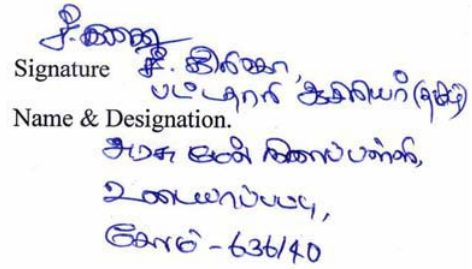 Signature சீ. இளிகா,
பட்டதாரி ஆசிரியர் (தமிழ்)
Name & Designation.
அரசு மேல் நிலைப்பள்ளி,
உடையாப்பட்டி,
சேலம் - 636140